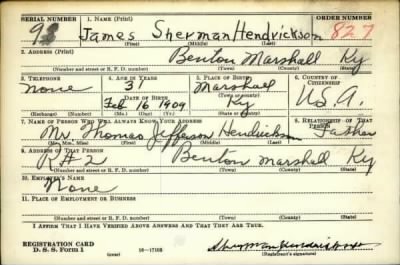 SERIAL NUMBER 1. NAME (Print) ORDER NUMBER
James Sherman Hendrickson 827
(First) (Middle) (Last)
2. ADDRESS (Print)
Benton Marshall Ky
(Number and street or R. F. D. number) (Town) (County) (State)
3. TELEPHONE 4. AGE IN YEARS 5. PLACE OF BIRTH 6. COUNTRY OF CITIZENSHIP
None 31 Marshall
DATE OF BIRTH (Town or county)
Feb 16 1909 Ky U.S.A.
(Exchange) (Number) (Mo.) (Day) (Yr.) (State or country)
7. NAME OF PERSON WHO WILL ALWAYS KNOW YOUR ADDRESS 8. RELATIONSHIP OF THAT PERSON
Mr. Thomas Jefferson Hendrickson Father
(Mr., Mrs., Miss) (First) (Middle) (Last)
9. ADDRESS OF THAT PERSON
R#2 Benton Marshall Ky
(Number and street or R. F. D. number) (Town) (County) (State)
10. EMPLOYER'S NAME
None
11. PLACE OF EMPLOYMENT OR BUSINESS
(Number and street or R. F. D. number) (Town) (County) (State)
I AFFIRM THAT I HAVE VERIFIED ABOVE ANSWERS AND THAT THEY ARE TRUE.
REGISTRATION CARD
D. S. S. Form 1 (over) 16—17105 Sherman Hendrickson
(Registrant's signature)